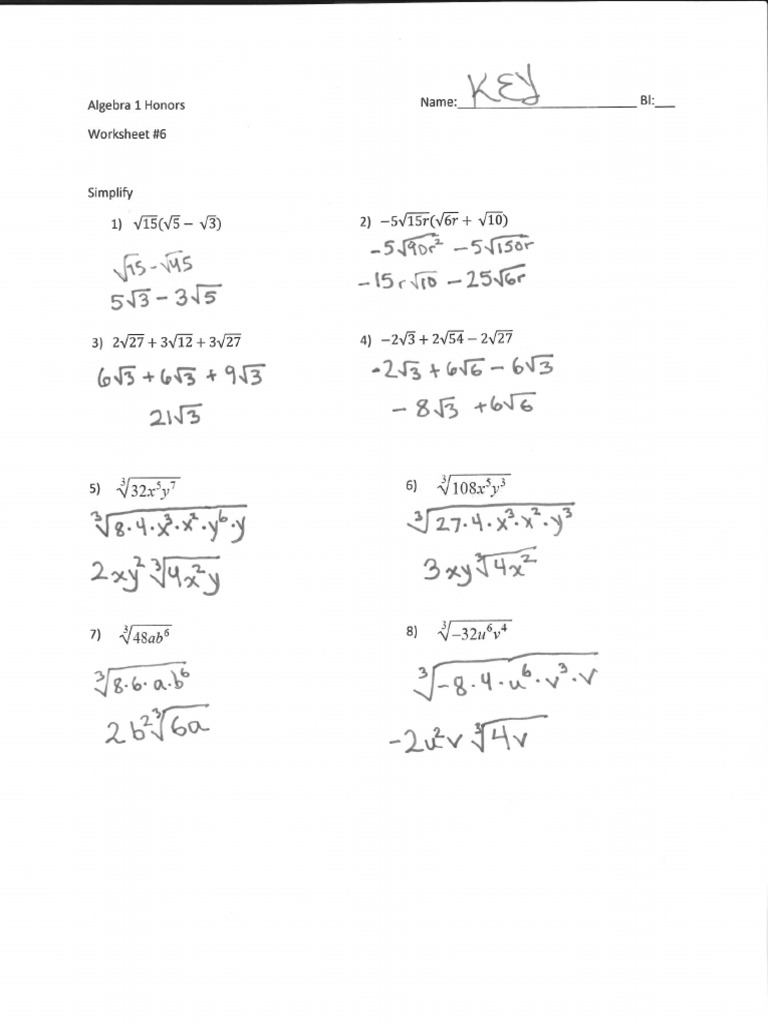 Algebra 1 Honors
Name: KEY Bl:___
Worksheet #6
Simplify
1) √15(√5 − √3)
√75 - √45
5√3 - 3√5
2) −5√15r(√6r + √10)
-5√90r² - 5√150r
-15r√10 - 25√6r
3) 2√27 + 3√12 + 3√27
6√3 + 6√3 + 9√3
21√3
4) −2√3 + 2√54 − 2√27
-2√3 + 6√6 - 6√3
-8√3 + 6√6
5) ∛32x⁵y⁷
∛8·4·x³·x²·y⁶·y
2xy²∛4x²y
6) ∛108x⁵y³
∛27·4·x³·x²·y³
3xy∛4x²
7) ∛48ab⁶
∛8·6·a·b⁶
2b²∛6a
8) ∛−32u⁶v⁴
∛-8·4·u⁶·v³·v
-2u²v∛4v